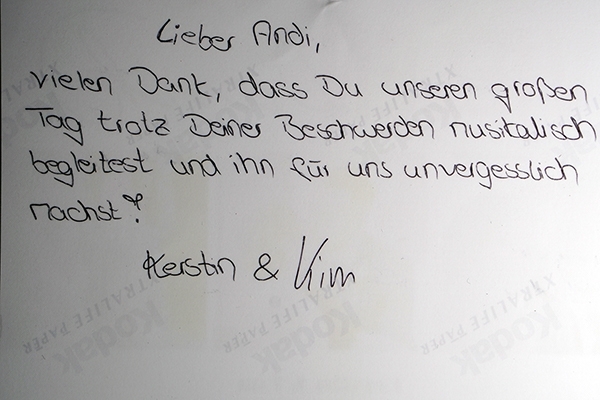 Lieber Andi,
vielen Dank, dass Du unseren großen
Tag trotz Deiner Beschwerden musitalisch
begleitest und ihn für uns unvergesslich
machst!
Kerstin & Kim
XTRALIFE PAPER
Kodak
XTRALIFE PAPER
Kodak
XTRALIFE PAPER
Kodak